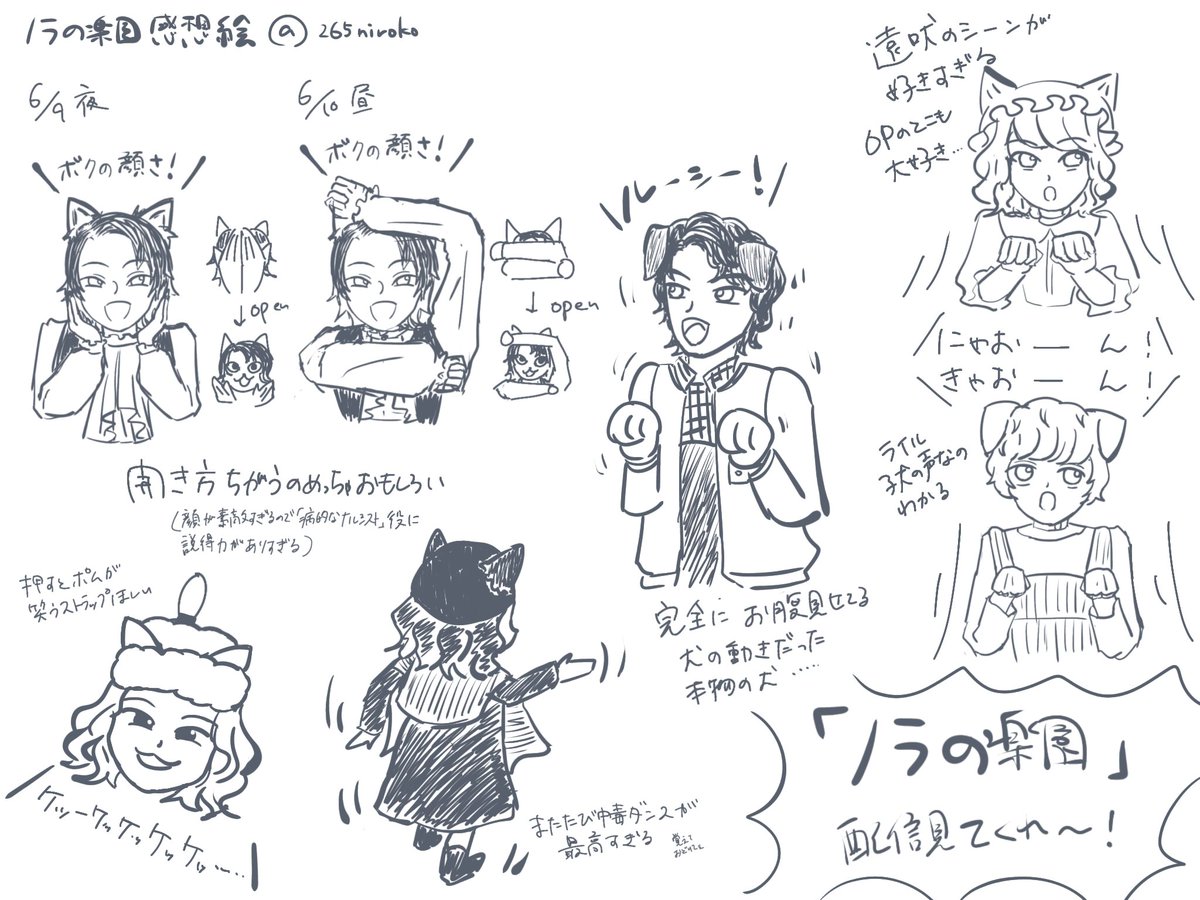 ノラの楽園 感想絵 @ 265niroko
6/9 夜
ボクの顔さ!
↓open
6/10 昼
ボクの顔さ!
↓open
開き方ちがうのめっちゃおもしろい
(顔が素晴らしすぎるので「病的なナルシスト」役に
説得力がありすぎる)
ルーシー!
完全にお腹見せてる
犬の動きだった
本物の犬……
遠吠のシーンが
好きすぎる
OPのここも
大好き…
にゃおーん!
きゃおーん!
ライル
子犬の声なの
わかる
押すとポムが
笑うストラップほしい
ケッーケッケッケッケッ……
またたび中毒ダンスが
最高すぎる
覚えて
おどりたい
「ノラの楽園」
配信見てくれ〜!